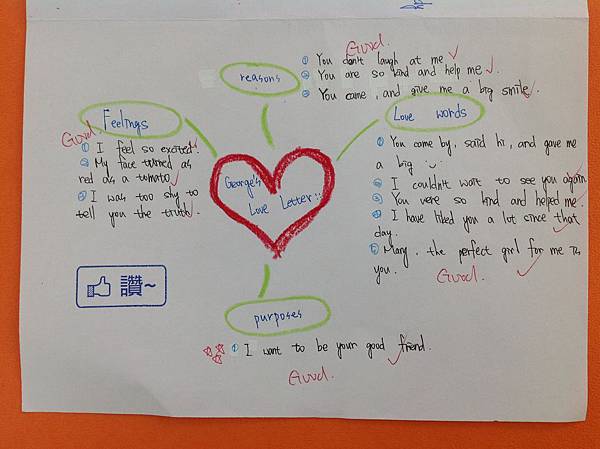 Good.
reasons
① You don't laugh at me
② You are so kind and help me.
③ You came, and give me a big smile.
Feelings
Good.
① I feel so excited.
② My face turned as
red as a tomato
③ I was too shy to
tell you the truth.
George's
Love Letter
Love words
① You came by, said hi, and gave me
a big
② I couldn't wait to see you again
③ You were so kind and helped me.
④ I have liked you a lot since that
day.
⑤ Mary, the perfect girl for me is
you.
Good.
讚~
purposes
① I want to be your good friend.
Good.